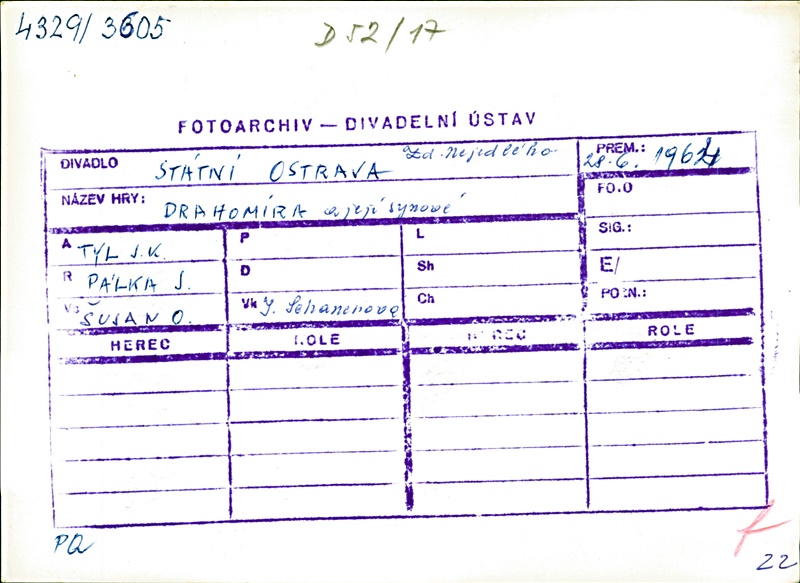 4329/3605
D52/17
FOTOARCHIV — DIVADELNÍ ÚSTAV
DIVADLO STÁTNÍ OSTRAVA Zd. Nejedlého
PREM.: 28.6. 1964
NÁZEV HRY: DRAHOMÍRA a její synové
FOTO
SIG.:
E/
POZN.:
A TYL J.K.
P
L
R PÁLKA J.
D
Sh
Vs ŠUJAN O.
Vk J.
Ch
HEREC ROLE HEREC ROLE
PQ
22